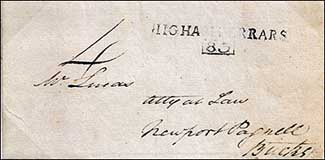 HIGHAM FERRARS
83
4
Mr Lucas
Atty at Law
Newport Pagnell
Bucks